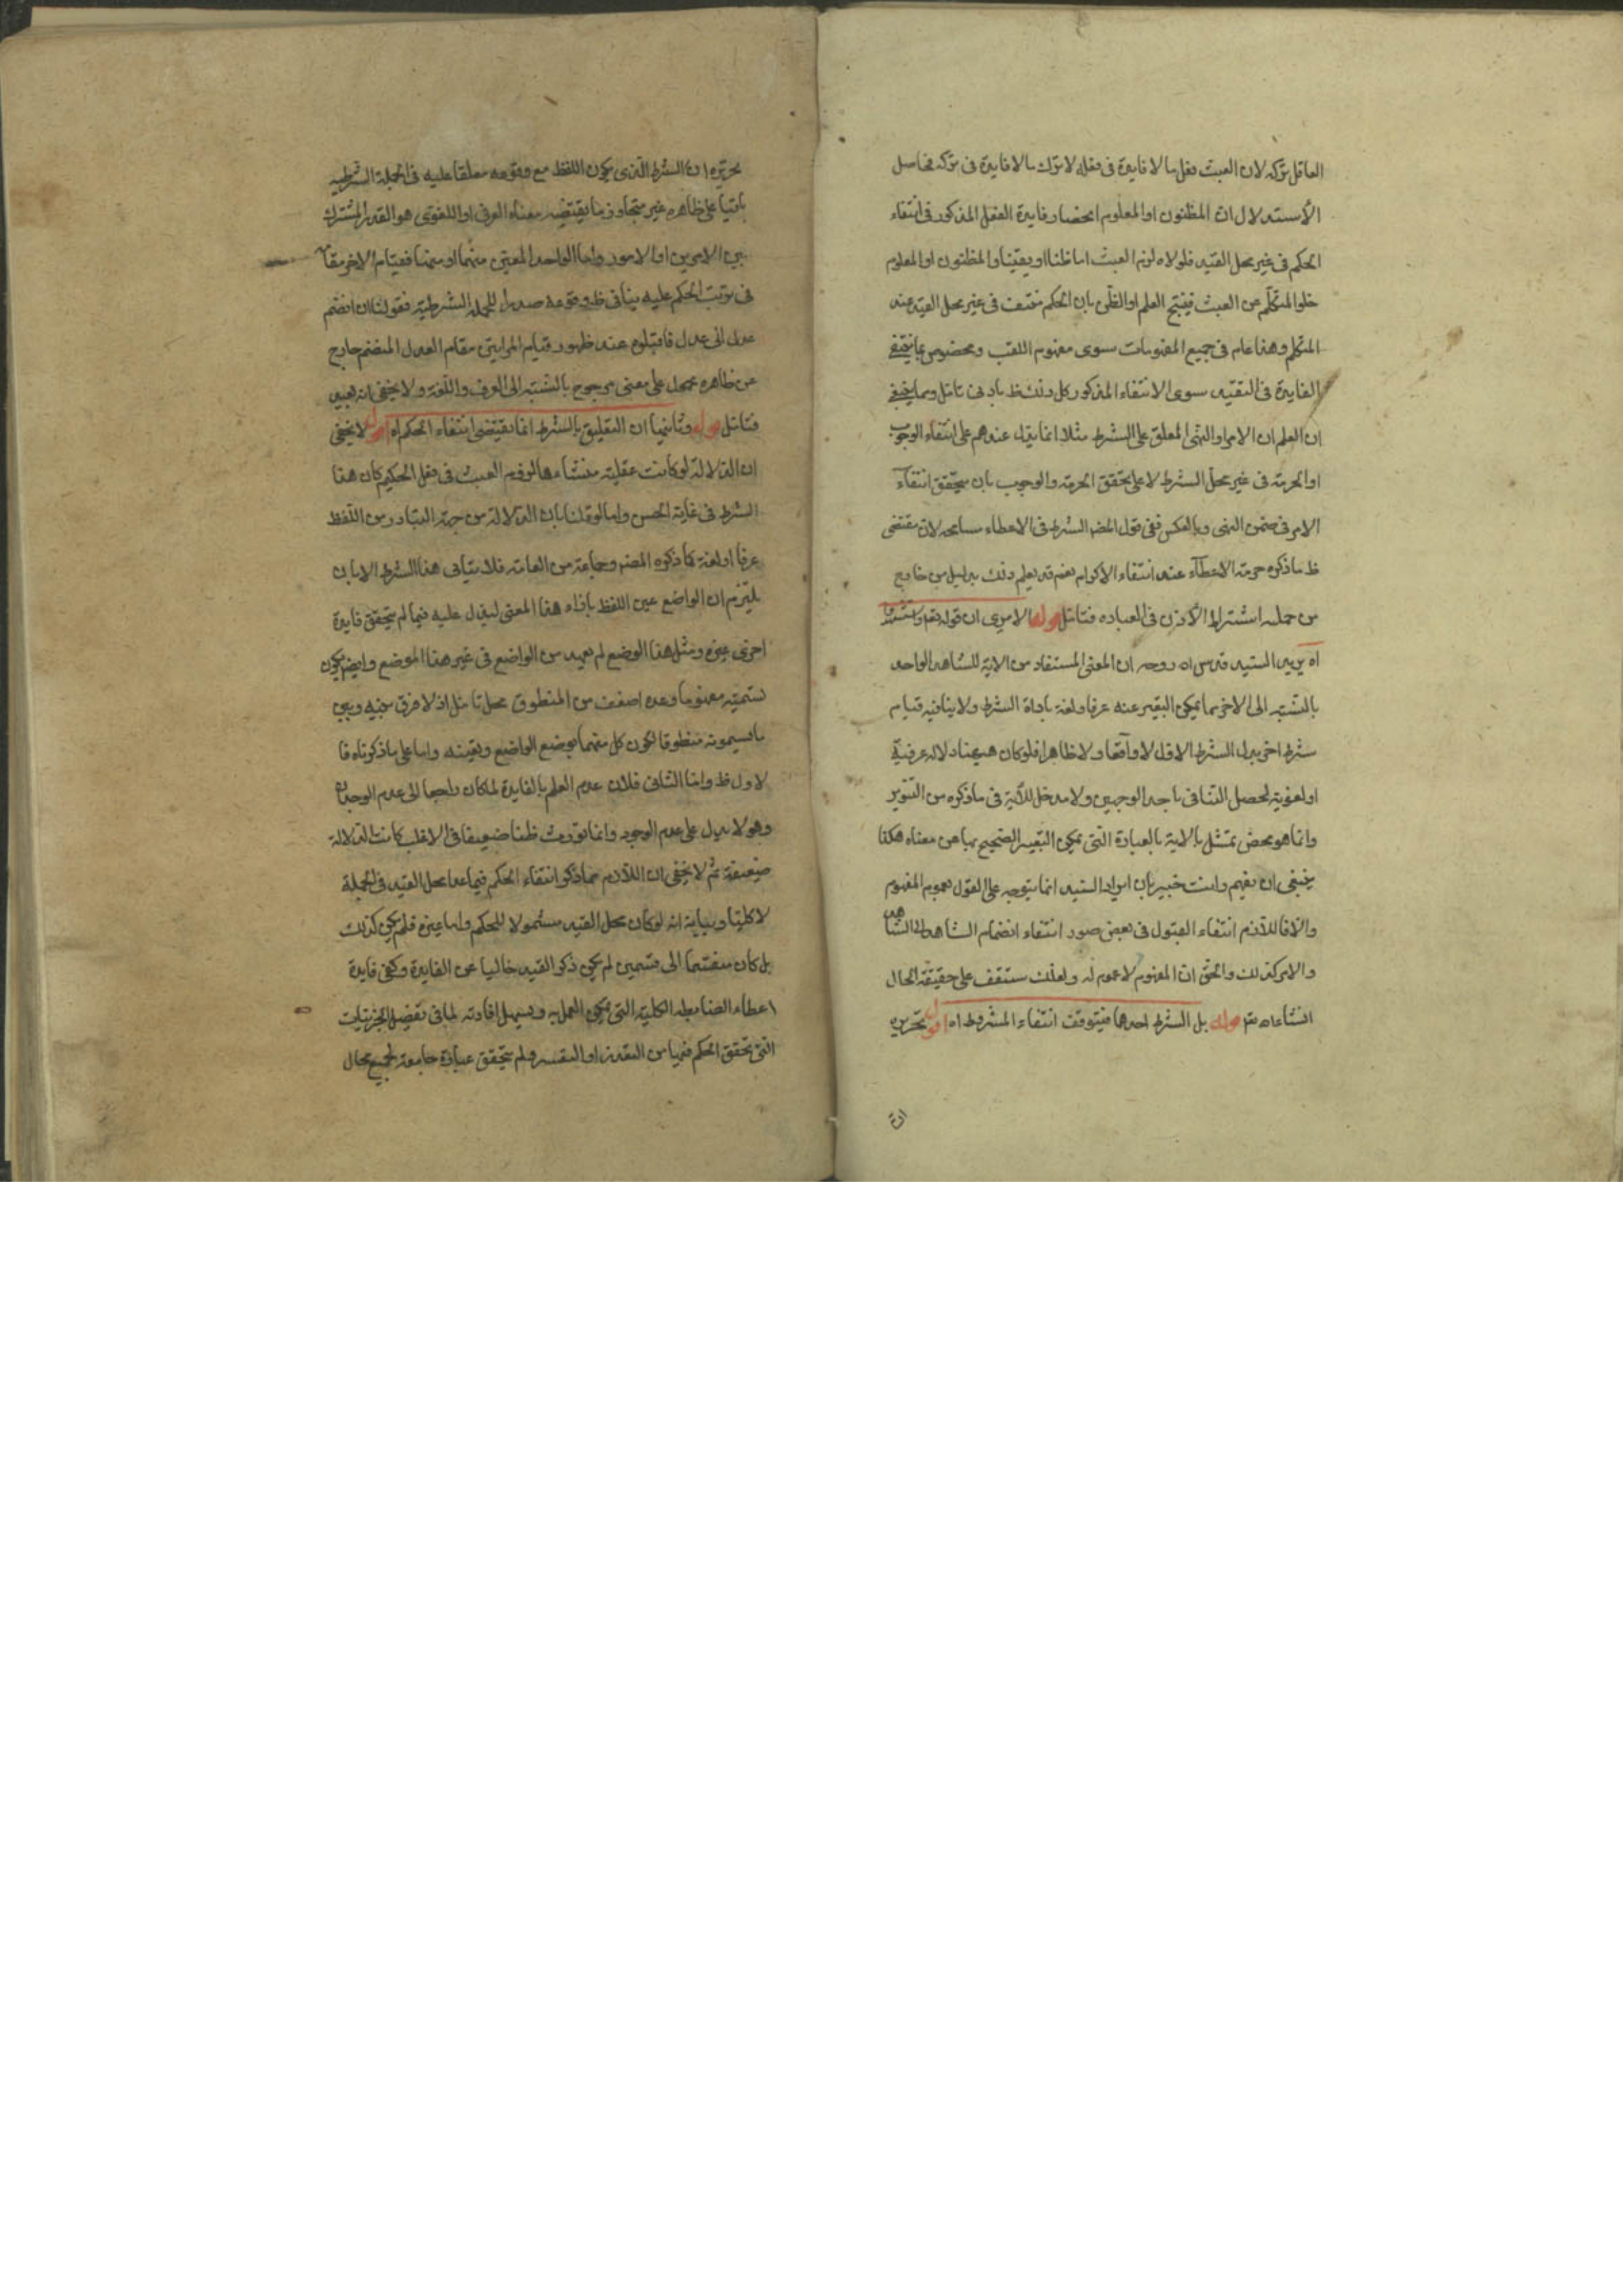 العاقل تركه لان العبث فعل ما لا فايدة فى فعله لا ترك ما لا فايدة فى تركه فحاصل
الاستدلال ان المظنون او المعلوم انحصار فايدة الفعل المذكور فى انتفاء
الحكم فى غير محل القيد فلولاه لزم العبث اما ظنا او يقينا والمظنون او المعلوم
خلو المتكلم عن العبث فينتج العلم او الظن بان الحكم منتف فى غير محل القيد عند
المتكلم وهذا عام فى جميع المفهومات سوى مفهوم اللقب ومخصوص بما ينتفى
الفايدة فى التقييد سوى الانتفاء المذكور كل ذلك ظ بادنى تامل ومما ينبغى
ان العلم ان الامر او النهى المعلق على الشرط مثلا انما يدل عندهم على انتفاء الوجوب
او الحرمة فى غير محل الشرط لا على تحقق الحرمة والوجوب بان يتحقق انتفاء
الامر فى ضمن النهى وبالعكس ففى قول المصه الشرط فى الاعطاء مسامحه لان مقتضى
ظ ما ذكره حرمة الاعطاء عند انتفاء الاكرام نعم قد يعلم ذلك بدليل من خارج
من جمله اشتراط الاذن فى العباده فتامل قوله الا مرى ان قوله تعم واستشهدوا
اه يريد السيد قدس اه روحه ان المعنى المستفاد من الاية للشاهد الواحد
بالنسبة الى الاخر مما يمكن التعبير عنه عرفا ولغة باداة الشرط ولا ينافيه قيام
شرط اخر بدل الشرط الاول لا واقعا ولا ظاهرا فلو كان هيهنا دلالة عرفية
او لغوية لحصل التنافى باحد الوجهين ولا مدخل للاية فى ما ذكره من التنوير
وانما هو محض تمثل بالاية بالعبادة التى يمكن التعبير الصحيح بها عن معناه هكذا
ينبغى ان يفهم وانت خبير بان ايراد السيد انما يتوجه على القول بعموم المفهوم
والا فاللازم انتفاء القبول فى بعض صور انتفاء انضمام الشاهد الى الشاهد
والامر كذلك والحق ان المفهوم لا عموم له ولعلك ستقف على حقيقة الحال
انشاء اه تع قوله بل الشرط احدهما فيتوقف انتفاء المشروط اه اقول تحريره
ان
تحريره ان الشرط الذى يكون اللفظ مع وقوعه معلقا عليه فى الجملة الشرطيه
باقيا على ظاهره غير متجاوز ما يقتضيه معناه العرفى او اللغوى هو القدر المشترك
بين الامرين او الامور واما الواحد المعين منهما او منها فقيام الاخر مقامه
فى ترتب الحكم عليه ينافى ظ وقوعه صدرا للجملة الشرطية فقولنا ان انضم
عدل الى عدل فاقبلوه عند ظهور قيام المراتين مقام العدل المنضم خارج
عن ظاهره محمول على معنى مرجوح بالنسبة الى العرف واللغة ولا يخفى انه بعيد
فتامل قوله وثانيها ان التعليق بالشرط انما يقتضى انتفاء الحكم اه اقول لا يخفى
ان الدلالة لو كانت عقلية منشاءها لزوم العبث فى فعل الحكيم كان هذا
الشرط فى غاية الحسن واما لو قلنا بان الدلالة من جهة التبادر من اللفظ
عرفا او لغة كما ذكره المصه وجماعة من العامه فلا يتاتى هذا الشرط الا بان
يلتزم ان الواضع عين اللفظ بازاء هذا المعنى ليدل عليه فيما لم يتحقق فايدة
اخرى غيره ومثل هذا الوضع لم يعهد من الواضع فى غير هذا الموضع وايضا يكون
تسميته مفهوما وعده اضعف من المنطوق محل تامل اذ لا فرق بينه وبين
ما يسمونه منطوقا لكون كل منهما بوضع الواضع وتعيينه واما على ما ذكرناه فا
لاول ظ واما الثانى فلان عدم العلم بالفايدة لما كان راجعا الى عدم الوجدان
وهو لا يدل على عدم الوجود وانما يورث ظنا ضعيفا فى الاغلب كانت الدلالة
ضعيفة ثم لا يخفى ان اللازم مما ذكر انتفاء الحكم فيما عدا محل القيد فى الجملة
لا كليا وبيانه انه لو كان محل القيد مشمولا للحكم واما غيره فلم يكن كذلك
بل كان منقسما الى قسمين لم يكن ذكر القيد خاليا عن الفايدة وكفى فايدة
اعطاء الضابطه الكلية التى يمكن العمل به ويسهل افادته لما فى تفصيل الجزئيات
التى تحقق الحكم فيها من التعذر او التعسر ولم يتحقق عبارة جامعة لجميع محال